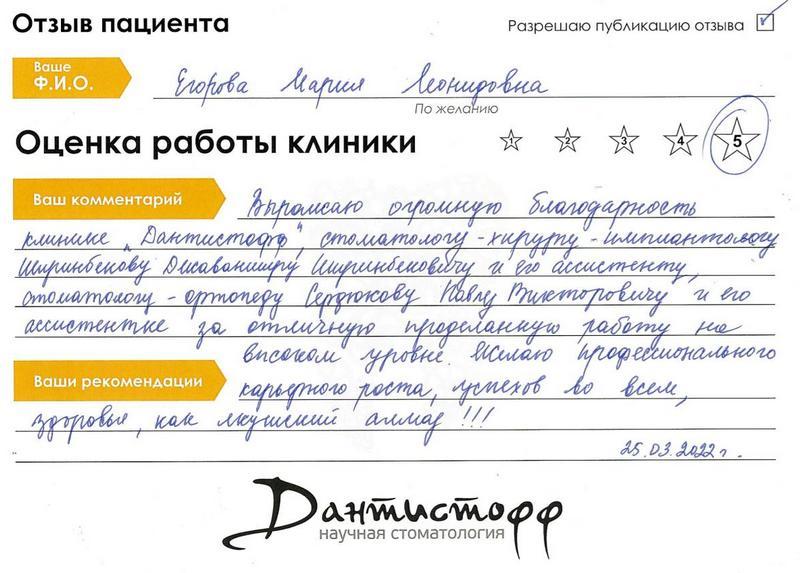 Отзыв пациента
Разрешаю публикацию отзыва
Ваше
Ф.И.О.
Егорова Мария Леонидовна
По желанию
Оценка работы клиники
1 2 3 4 5
Ваш комментарий
Выражаю огромную благодарность
клинике "Дантистофф", стоматологу-хирургу-имплантологу
Ширинбекову Джаванширу Ширинбековичу и его ассистенту,
стоматологу-ортопеду Сердюкову Павлу Викторовичу и его
ассистентке за отличную проделанную работу на
высоком уровне. Желаю профессионального
Ваши рекомендации
карьерного роста, успехов во всем,
здоровья, как якутский алмаз !!!
25.03.2022 г.
Дантистофф
научная стоматология